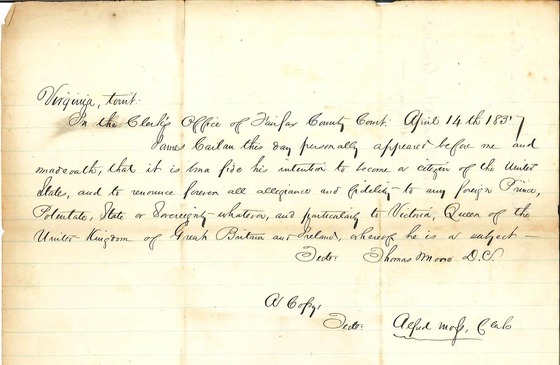 Virginia, towit:
In the Clerk's Office of Fairfax County Court: April 14th 1857
James Carlan this day personally appeared before me and
made oath, that it is bona fide his intention to become a citizen of the United
States, and to renounce forever all allegiance and fidelity to any foreign Prince,
Potentate, State or Sovereignty whatever, and particularly to Victoria, Queen of the
United Kingdom of Great Britain and Ireland, whereof he is a subject —
Teste: Thomas Moore D.C.
A Copy,
Teste: Alfred Moss, Clerk